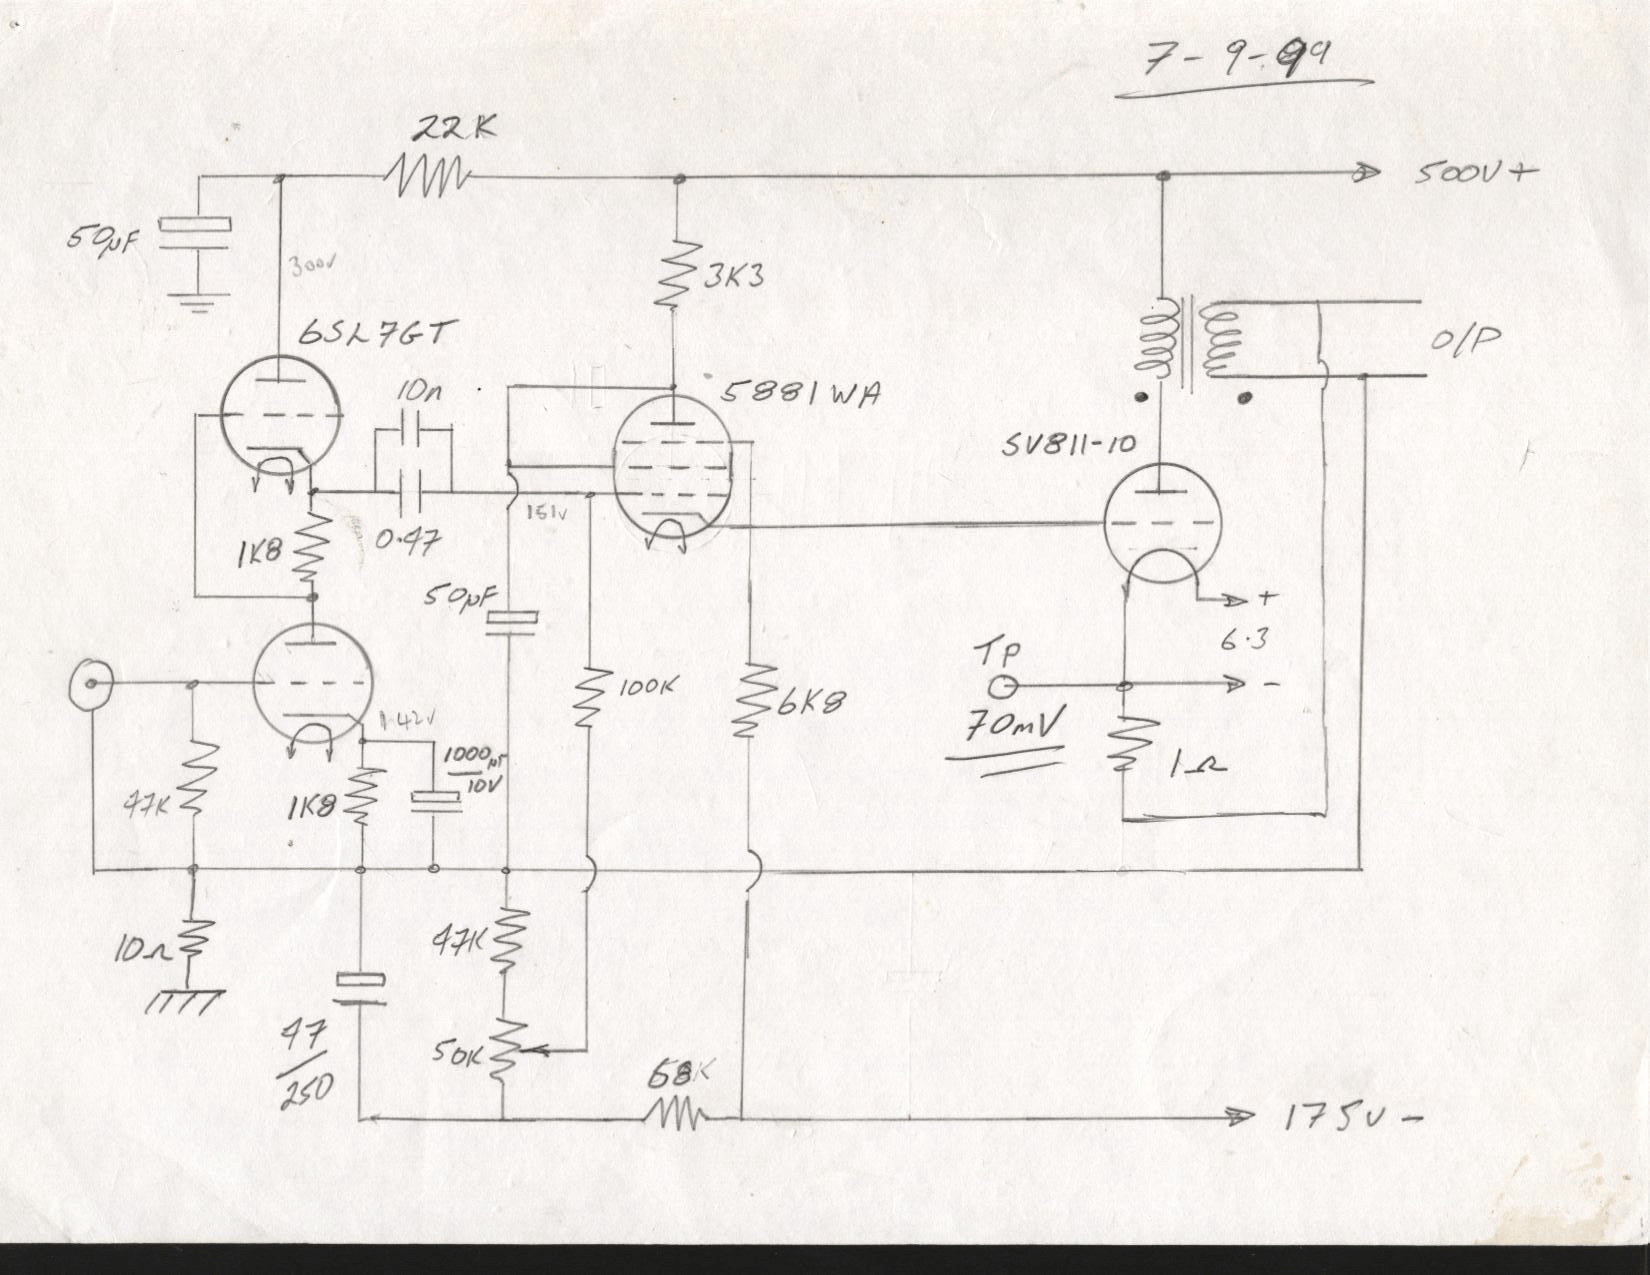 7-9-99
22K
500V+
50µF
300V
3K3
6SL7GT
10n
5881WA
O/P
SV811-10
151V
1K8
0.47
50µF
+
6.3
TP
-
70mV
100K
6K8
1.42V
1000µF
10V
1Ω
47K
1K8
10Ω
47K
47
250
50K
68K
175V-